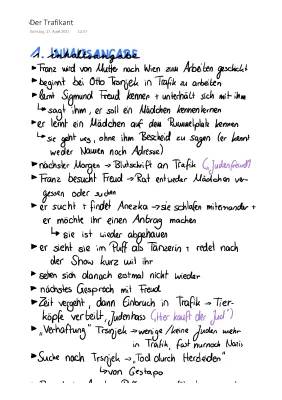 Der Trafikant
1. INHALTSANGABE
►Franz wird von Mutter nach Wien zum Arbeiten geschickt
►beginnt bei Otto Trsnjek in Trafik zu arbeiten
►lernt Sigmund Freud kennen + unterhält sich mit ihm
↳ sagt ihm, er soll ein Mädchen kennenlernen
►er lernt ein Mädchen auf dem Rummelplatz kennen
↳ sie geht weg, ohne ihm Bescheid zu sagen (er kennt
weder Namen noch Adresse)
►nächster Morgen → Blutschrift an Trafik („Judenfreund“)
►Franz besucht Freud → Rat entweder Mädchen ver-
gessen oder suchen
►er sucht + findet Anezka → sie schlafen miteinander +
er möchte ihr einen Antrag machen
↳ sie ist wieder abgehauen
►er sieht sie im Puff als Tänzerin + redet nach
der Show kurz mit ihr
►sehen sich danach erstmal nicht wieder
►nächstes Gespräch mit Freud
►Zeit vergeht, dann Einbruch in Trafik → Tier-
köpfe verteilt, Judenhass („Hier kauft der Jud“)
►„Verhaftung“ Trsnjek → wenige/keine Juden mehr
in Trafik, fast nur noch Nazis
►Suche nach Trsnjek → „Tod durch Herzleiden“
↳ von Gestapo